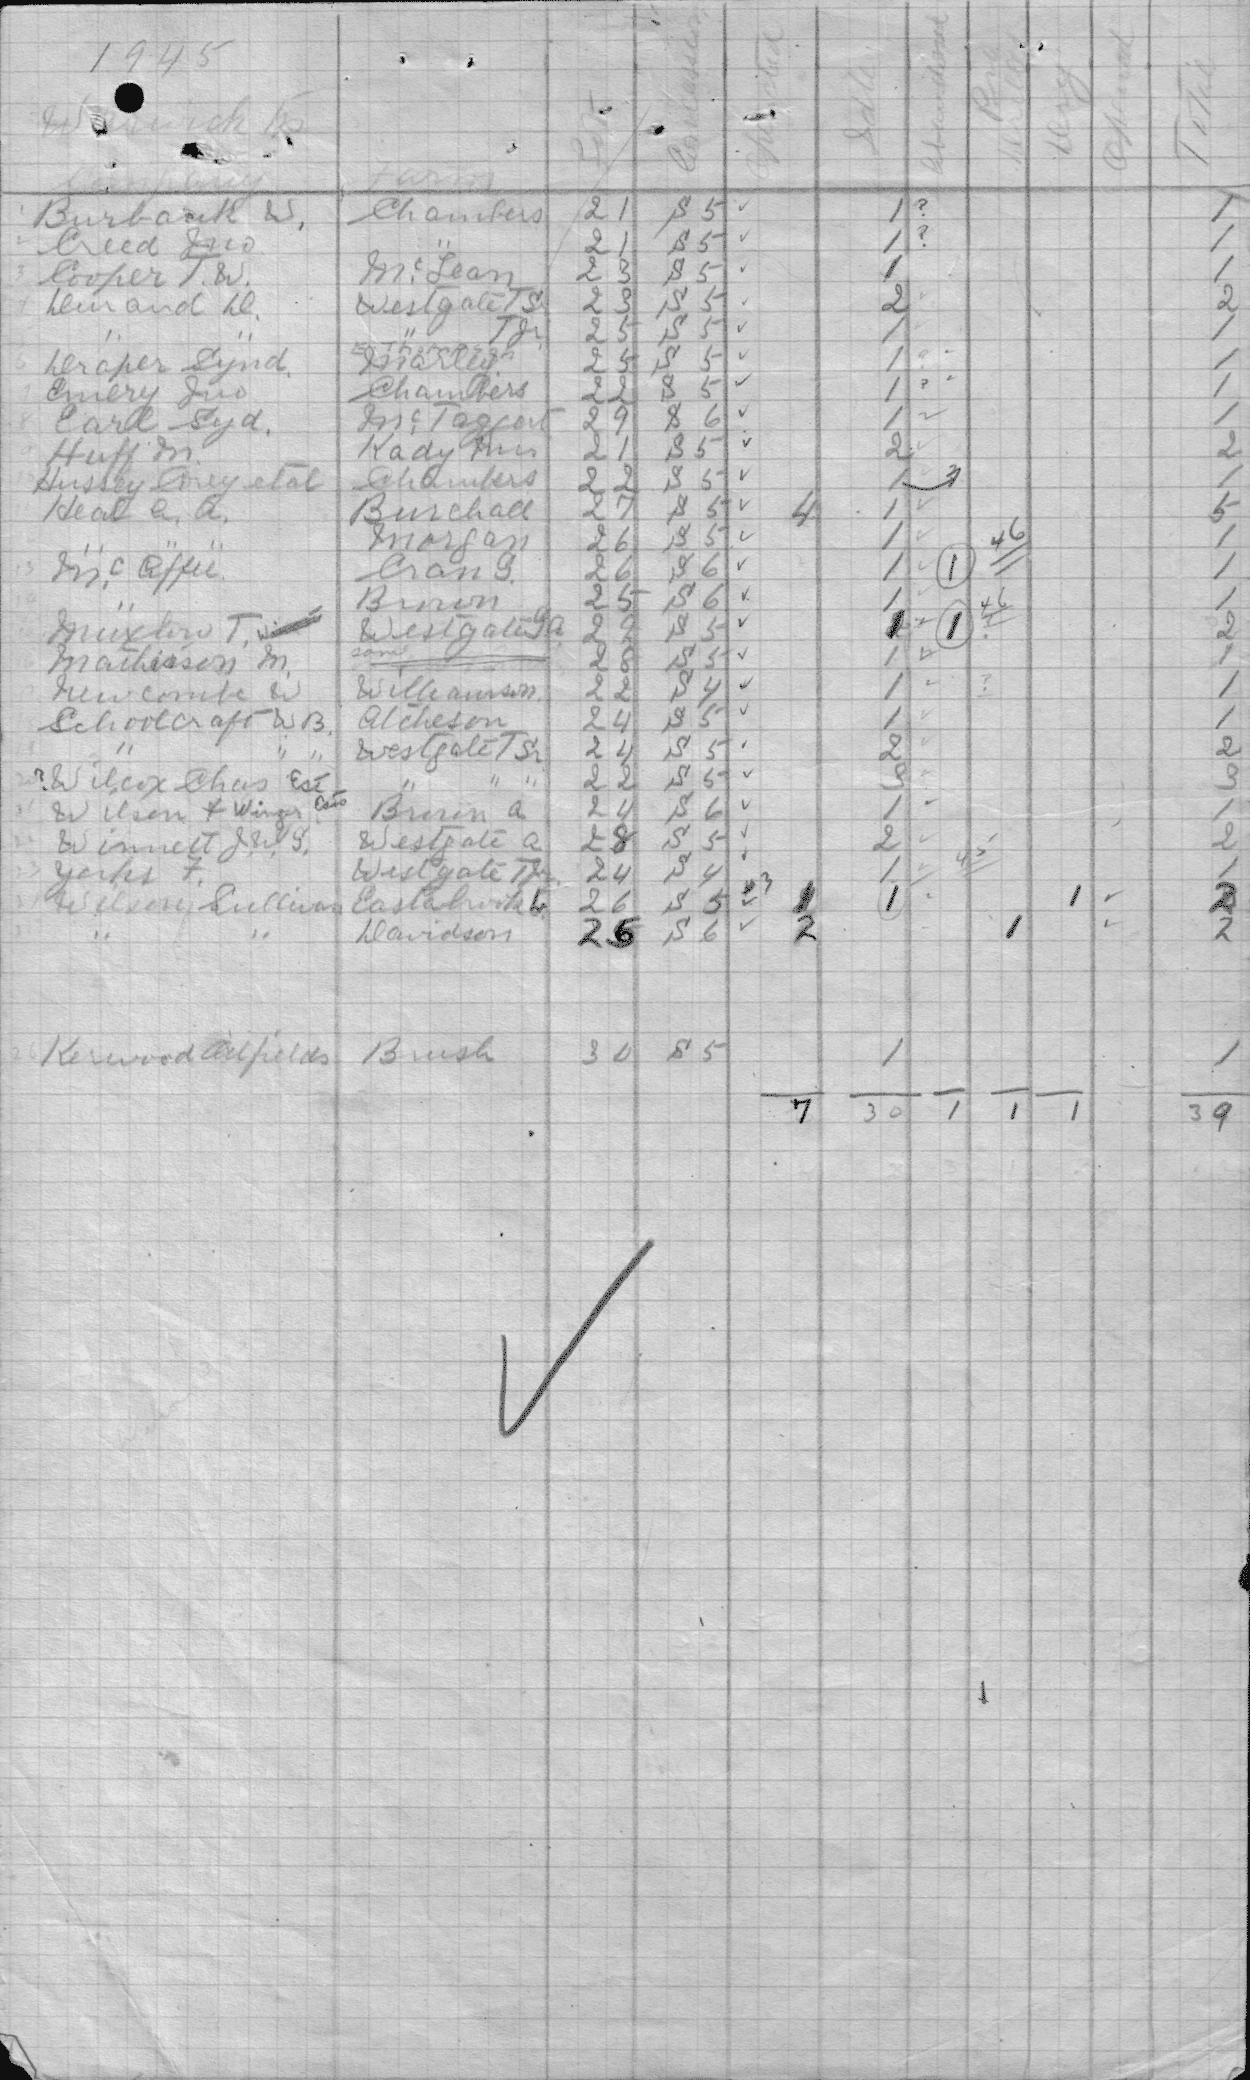 1945
Warwick Tp
Company Farm Lot Concession Operated Idle Abandoned Prod Dry Total
1 Burbank W. Chambers 21 S 5 ✓ 1 ? 1
Creed Jno " 21 S 5 ✓ 1 ? 1
3 Cooper T. W. McLean 23 S 5 ✓ 1 1
Durand D. Westgate T Sr 23 S 5 ✓ 2 2
" " " T Jr. 25 S 5 ✓ 1 1
6 Draper Synd. 25 S 5 ✓ 1 ? 1
7 Emery Jno Chambers 22 S 5 ✓ 1 ? 1
Earl Syd. McTaggart 29 S 6 ✓ 1 ✓ 1
Huff M. Kady 21 S 5 ✓ 2 2
Hussey Corey etal Chambers 22 S 5 ✓ 1 ? 1
Heal A. A. Burchall 27 S 5 ✓ 4 1 ✓ 5
" " Morgan 26 S 5 ✓ 1 ✓ 46 1
13 McAffie. Cran G. 26 S 6 ✓ 1 ✓ 1 1
" Brown 25 S 6 ✓ 1 46 1
Muxlow T. W Westgate G A 29 S 5 ✓ 1 ✓ 1 ? 2
Mathieson M. same 28 S 5 ✓ 1 ✓ 1
Newcombe W Williamson. 22 S 4 ✓ 1 ✓ ? 1
Schoolcraft W B. Atcheson 24 S 5 ✓ 1 ✓ 1
" " " Westgate T Sr 24 S 5 ✓ 2 ✓ 2
? Wilcox Chas Est " " " 22 S 5 ✓ 3 3
Wilson & Winger Ests Brown A 24 S 6 ✓ 1 ✓ 1
Winnett J. W. G. Westgate A 28 S 5 ✓ 2 ✓ 2
23 Yorks F. Westgate T Jr. 24 S 4 ✓ 1 ✓ 45 1
Wilson Sullivan Eastabrook L. 26 S 5 ✓ ? 1 1 1 ✓ 3
" " Davidson 26 S 6 ✓ 2 1 ✓ 2
26 Kerwood Oilfields Brush 30 S 5 1 1
7 30 1 1 1 39